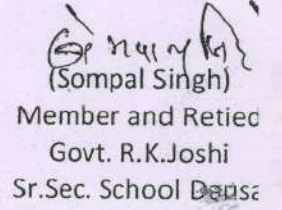 (Sompal Singh)
Member and Retied
Govt. R.K.Joshi
Sr.Sec. School